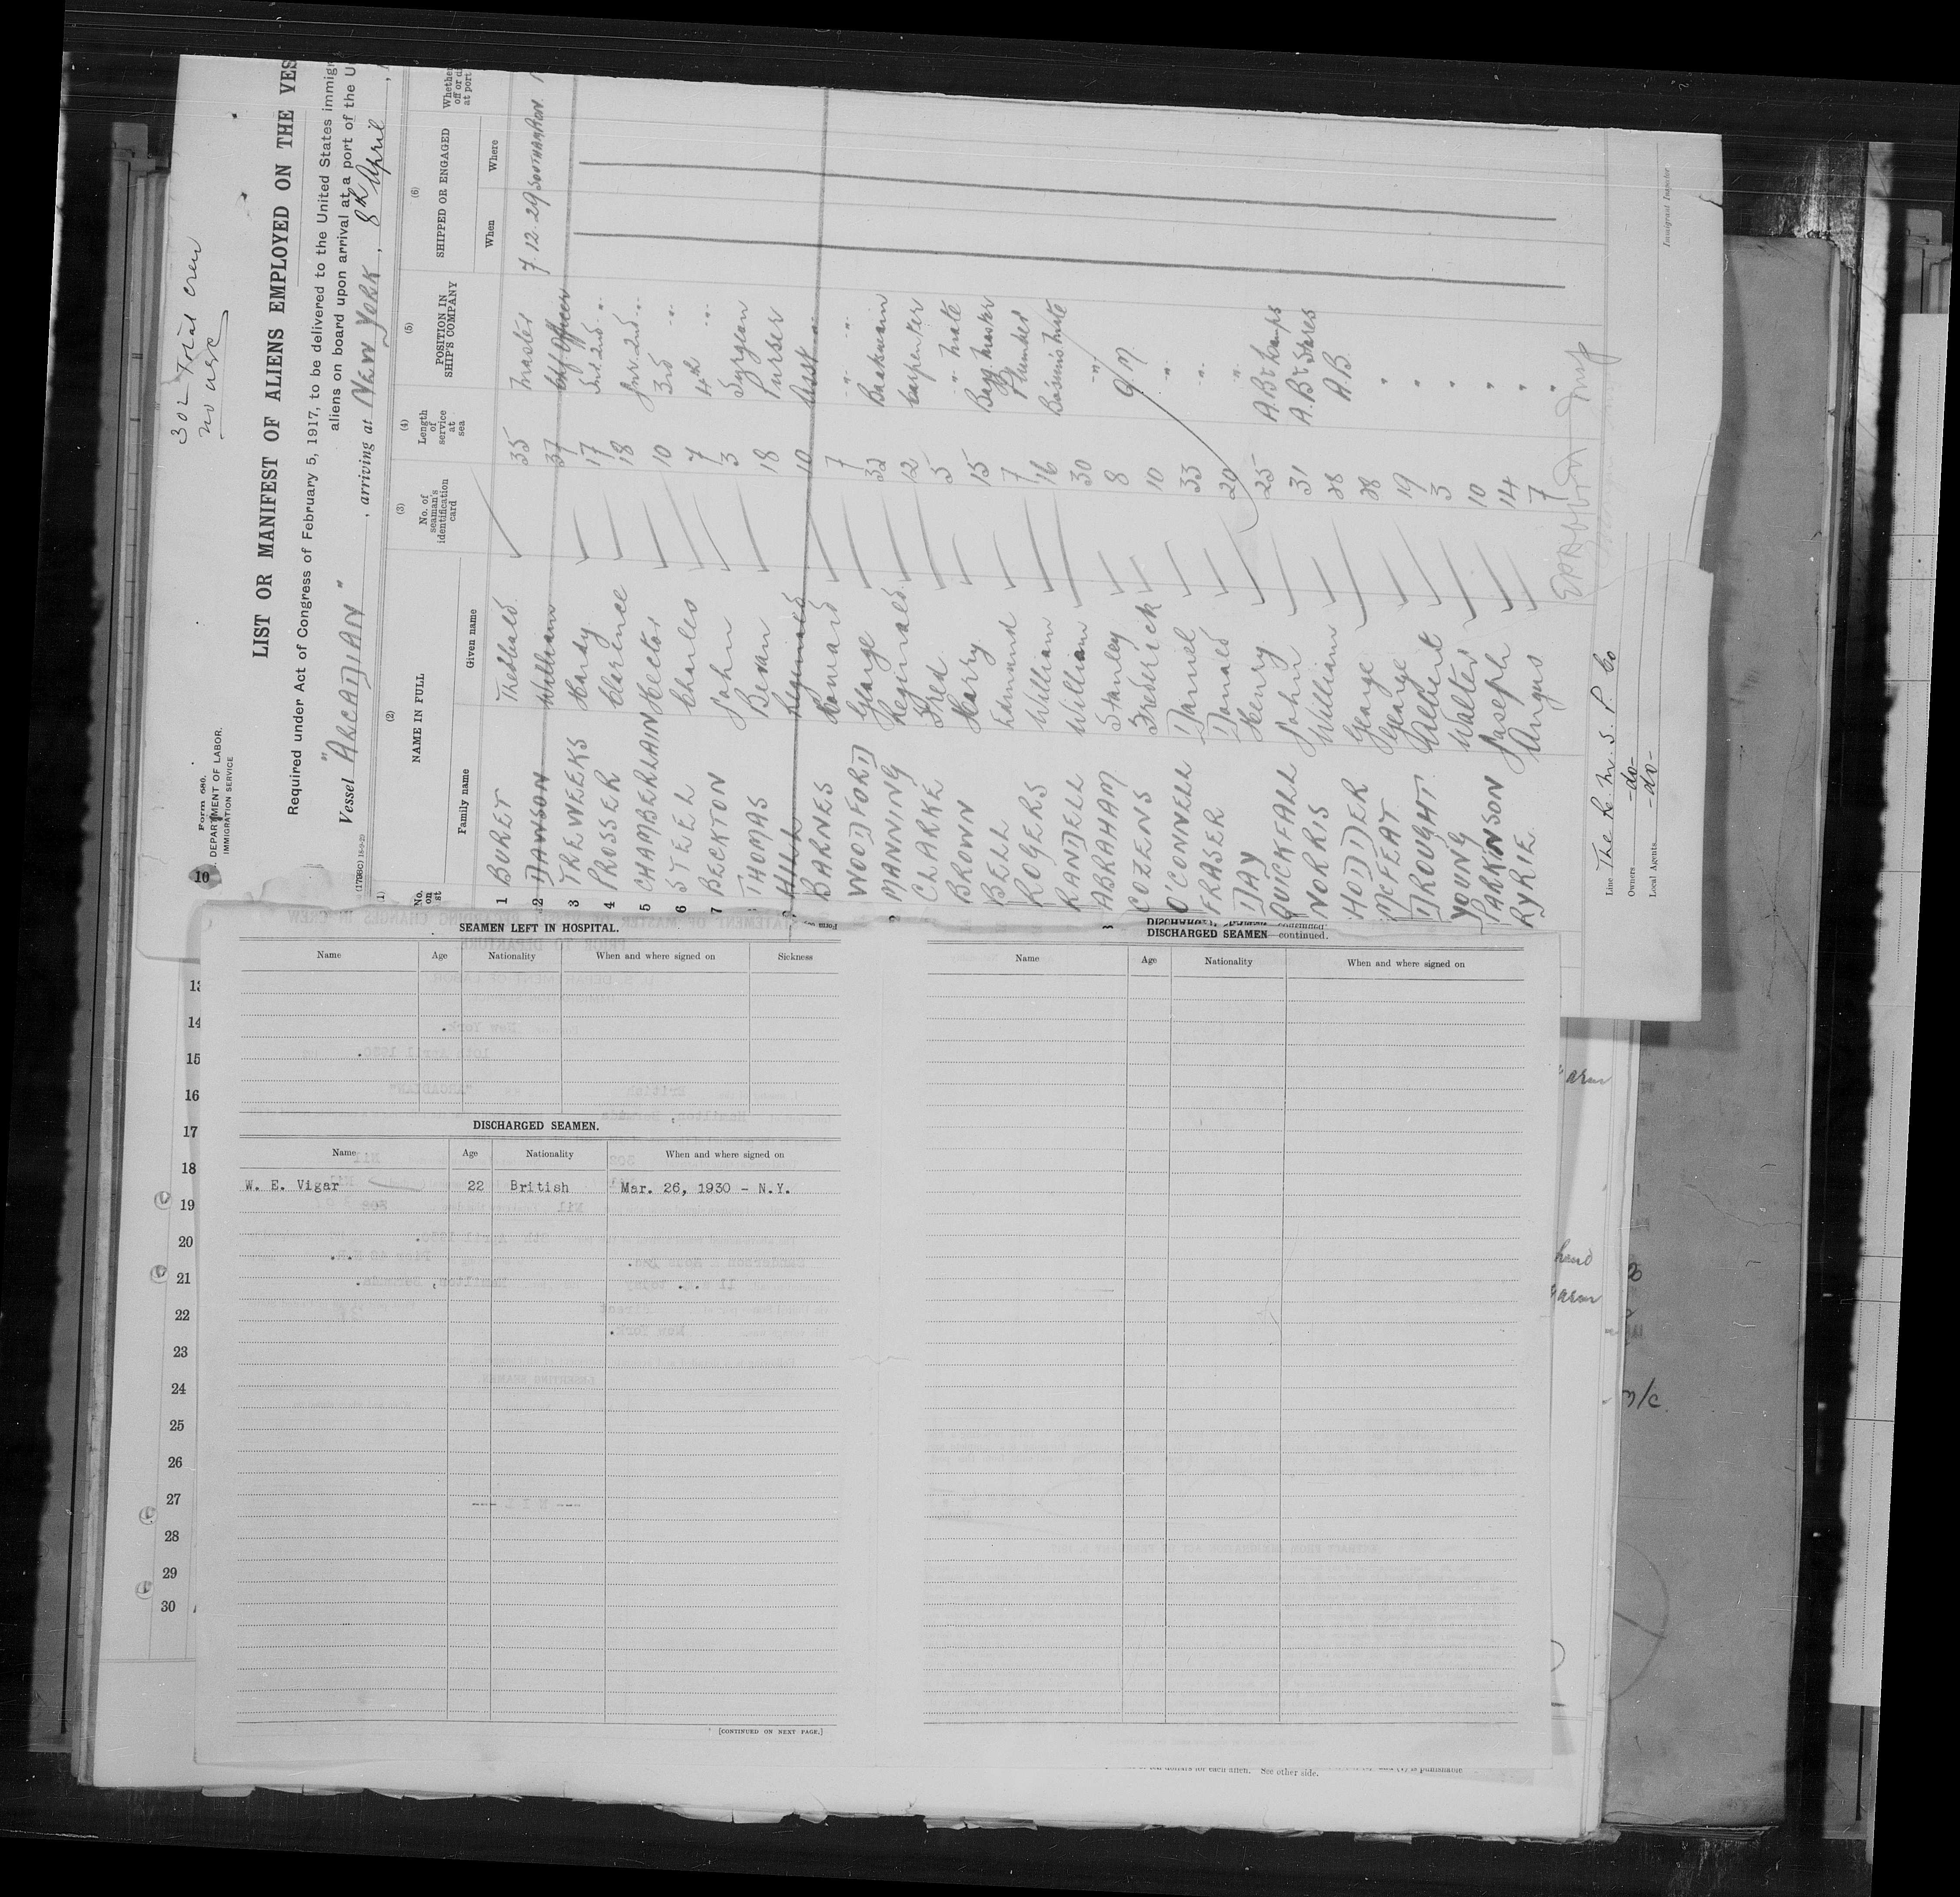 302 Total crew
no
10
Form 680.
DEPARTMENT OF LABOR,
IMMIGRATION SERVICE
LIST OR MANIFEST OF ALIENS EMPLOYED ON THE VES
Required under Act of Congress of February 5, 1917, to be delivered to the United States immigr
aliens on board upon arrival at a port of the U
Vessel "ARCADIAN" , arriving at NEW YORK , 8th April ,
(1) (2) (3) (4) (5) (6)
No. on NAME IN FULL No. of seaman's identification card Length of service at sea POSITION IN SHIP'S COMPANY SHIPPED OR ENGAGED Whether
Family name Given name When Where
1 BURET Theobald 35 Master 7.12.29 SOUTHAMPTON
2 DAWSON William 37 Chf Officer
3 TREWEEKS Hardy 17 Snr 2nd "
4 PROSSER Clarence 18 Jnr 2nd "
5 CHAMBERLAIN Hector 10 3rd "
6 STEEL Charles 7 4th "
7 BECKTON John 3 Surgeon
THOMAS Bevan 18 Purser
HILL Reginald 10 Asst "
BARNES Howard 7 " "
WOODFORD George 32 Boatswain
MANNING Reginald 12 Carpenter
CLARKE Fred 5 " Mate
BROWN Harry 15 Bagg Master
BELL Edmund 7 Plumber
ROGERS William 16 Bosuns Mate
RANDELL William 30 "
ABRAHAM Stanley 8 Q/M
COZENS Frederick 10 "
O'CONNELL Daniel 33 "
FRASER Donald 20 "
DAY Henry 25 A.B & Lamps
QUICKFALL John 31 A.B & Stores
NORRIS William 28 A.B.
HODDER George 28 "
McFEAT George 19 "
DROUGHT Albert 3 "
YOUNG Walter 10 "
PARKINSON Joseph 14 "
RYRIE Angus 7 "
Line The R. M. S. P. Co
Owners -do-
Local Agents -do-
Immigrant Inspector
SEAMEN LEFT IN HOSPITAL.
Name Age Nationality When and where signed on Sickness
DISCHARGED SEAMEN.
Name Age Nationality When and where signed on
W. E. Vigar 22 British Mar. 26, 1930 - N.Y.
[CONTINUED ON NEXT PAGE.]
DISCHARGED SEAMEN—continued.
Name Age Nationality When and where signed on
13
14
15
16
17
18
19
20
21
22
23
24
25
26
27
28
29
30
arm
hand
arm
dollars for each alien. See other side.
is punishable